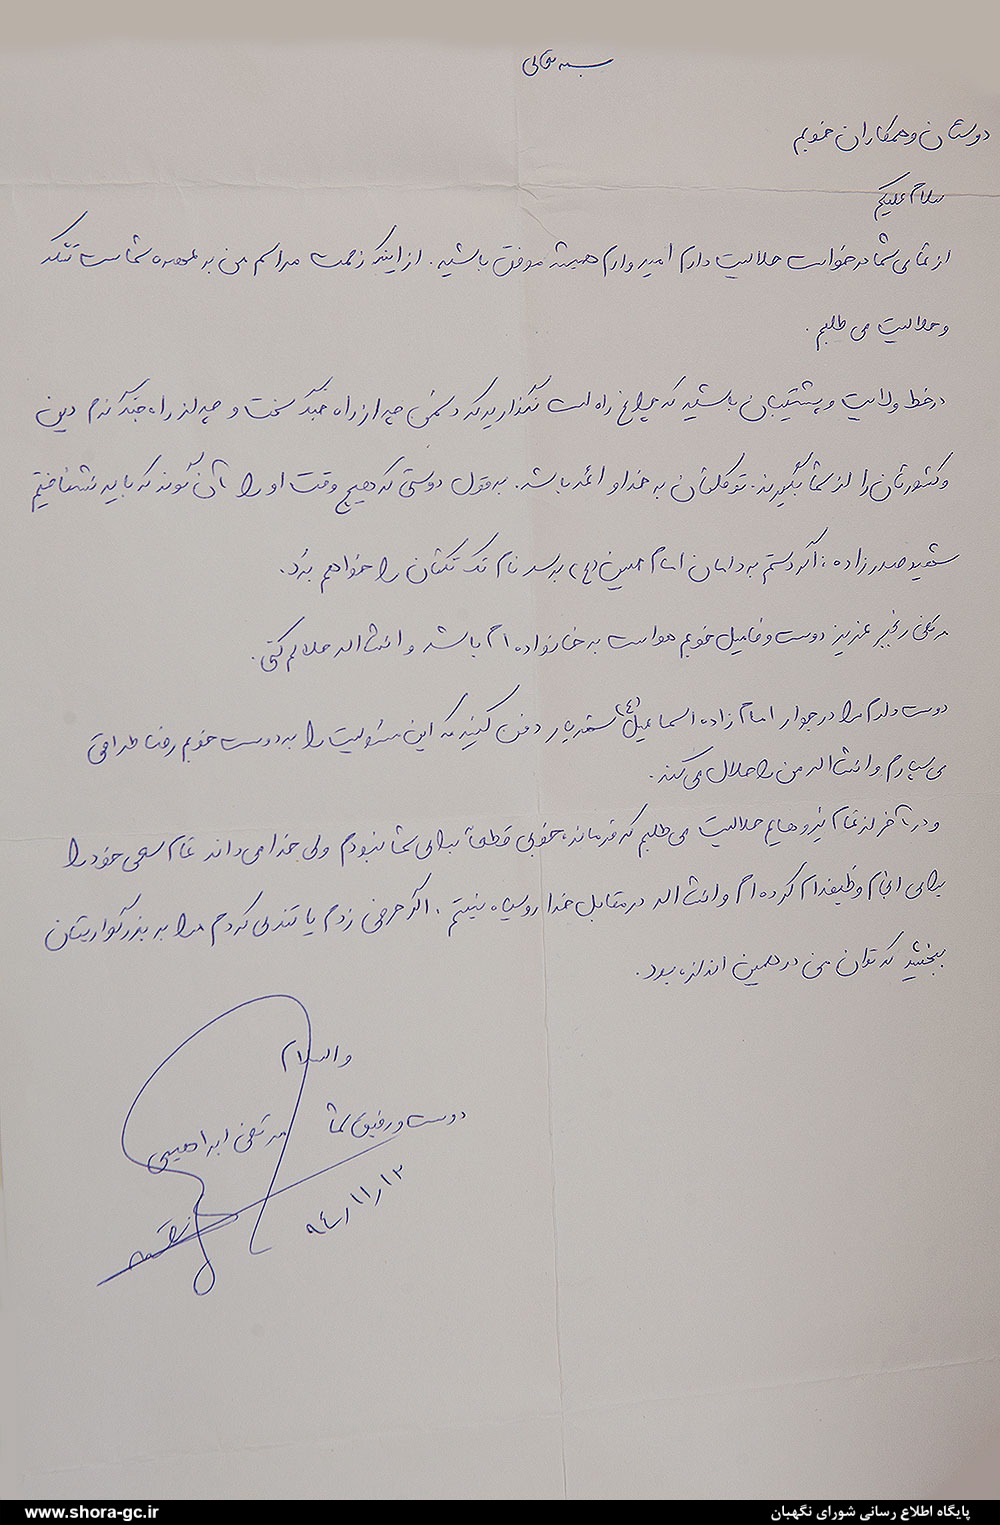 بسمه تعالی
دوستان و همکاران خوبم
سلام علیکم
از تمامی شما درخواست حلالیت دارم امیدوارم همیشه موفق باشید. از اینکه زحمت مراسم من بر عهده شماست تشکر
و حلالیت می طلبم.
در خط ولایت و پشتیبان باشید که چراغ راه است نگذارید که دشمن چه از راه جنگ سخت و چه از راه جنگ نرم دین
و کشورتان را از شما بگیرند. توکلتان به خدا و ائمه باشد. به قول دوستی که هیچ وقت او را آن گونه که باید نشناختم
شهید صدرزاده: اگر دستم به دامان امام حسین (ع) برسد نام تک تکتان را خواهم برد.
مرتضی رنجبر عزیز دوست و فامیل خوبم هواست به خانواده ام باشد و انشاالله حلالم کنی.
دوست دارم مرا در جوار امام زاده اسماعیل (ع) شهریار دفن کنید که این مسئولیت را به دوست خوبم رضا طراقی
می سپارم و انشاالله من را حلال می کند.
و در آخر از تمام نیروهایم حلالیت می طلبم که فرمانده خوبی قطعاً برای شما نبودم ولی خدا می داند تمام سعی خود را
برای انجام وظیفه ام کرده ام و انشاالله در مقابل خدا روسیاه نیستم. اگر حرفی زدم یا تندی کردم مرا به بزرگواریتان
ببخشید که توان من در همین اندازه بود.
والسلام
دوست و رفیق شما مرتضی ابراهیمی
۹۴/۱۱/۱۲
www.shora-gc.ir پایگاه اطلاع رسانی شورای نگهبان